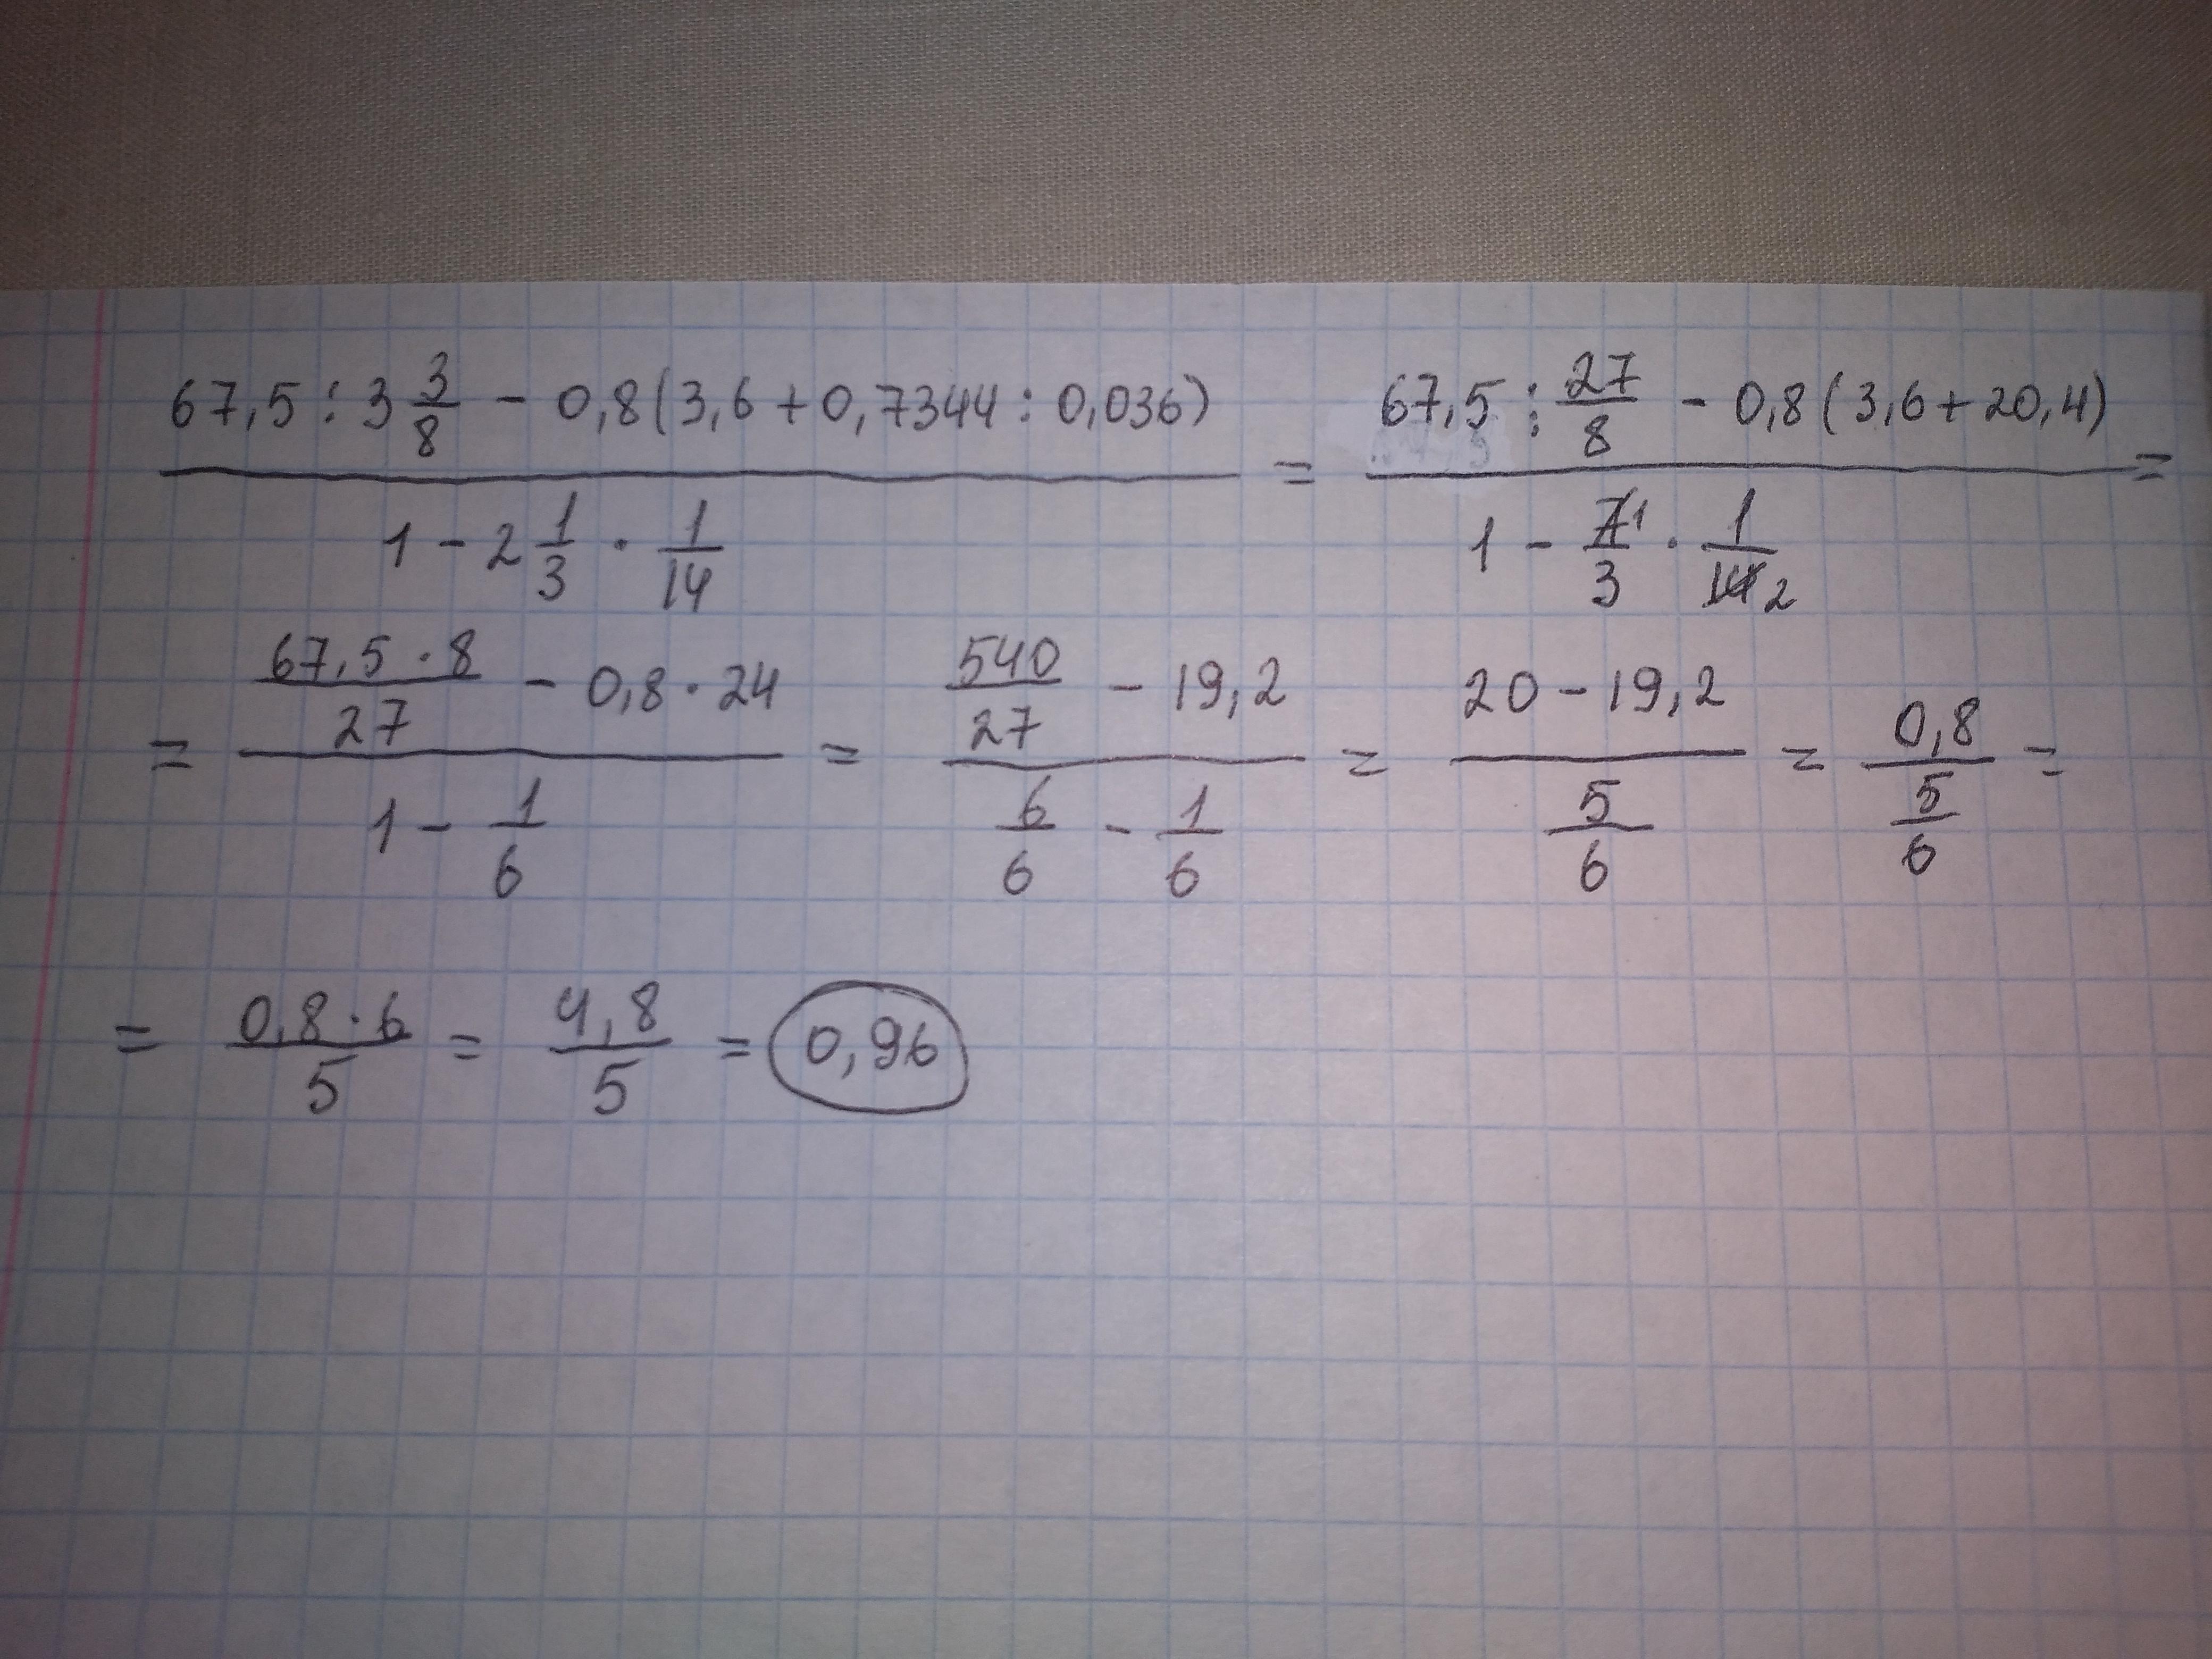 (67,5 : 3 3/8 - 0,8(3,6 + 0,7344 : 0,036)) / (1 - 2 1/3 · 1/14) = (67,5 : 27/8 - 0,8(3,6 + 20,4)) / (1 - 7̶1/3 · 1/1̶4̶2) =
= (67,5 · 8/27 - 0,8 · 24) / (1 - 1/6) = (540/27 - 19,2) / (6/6 - 1/6) = (20 - 19,2) / (5/6) = 0,8 / (5/6) =
= 0,8 · 6/5 = 4,8/5 = 0,96